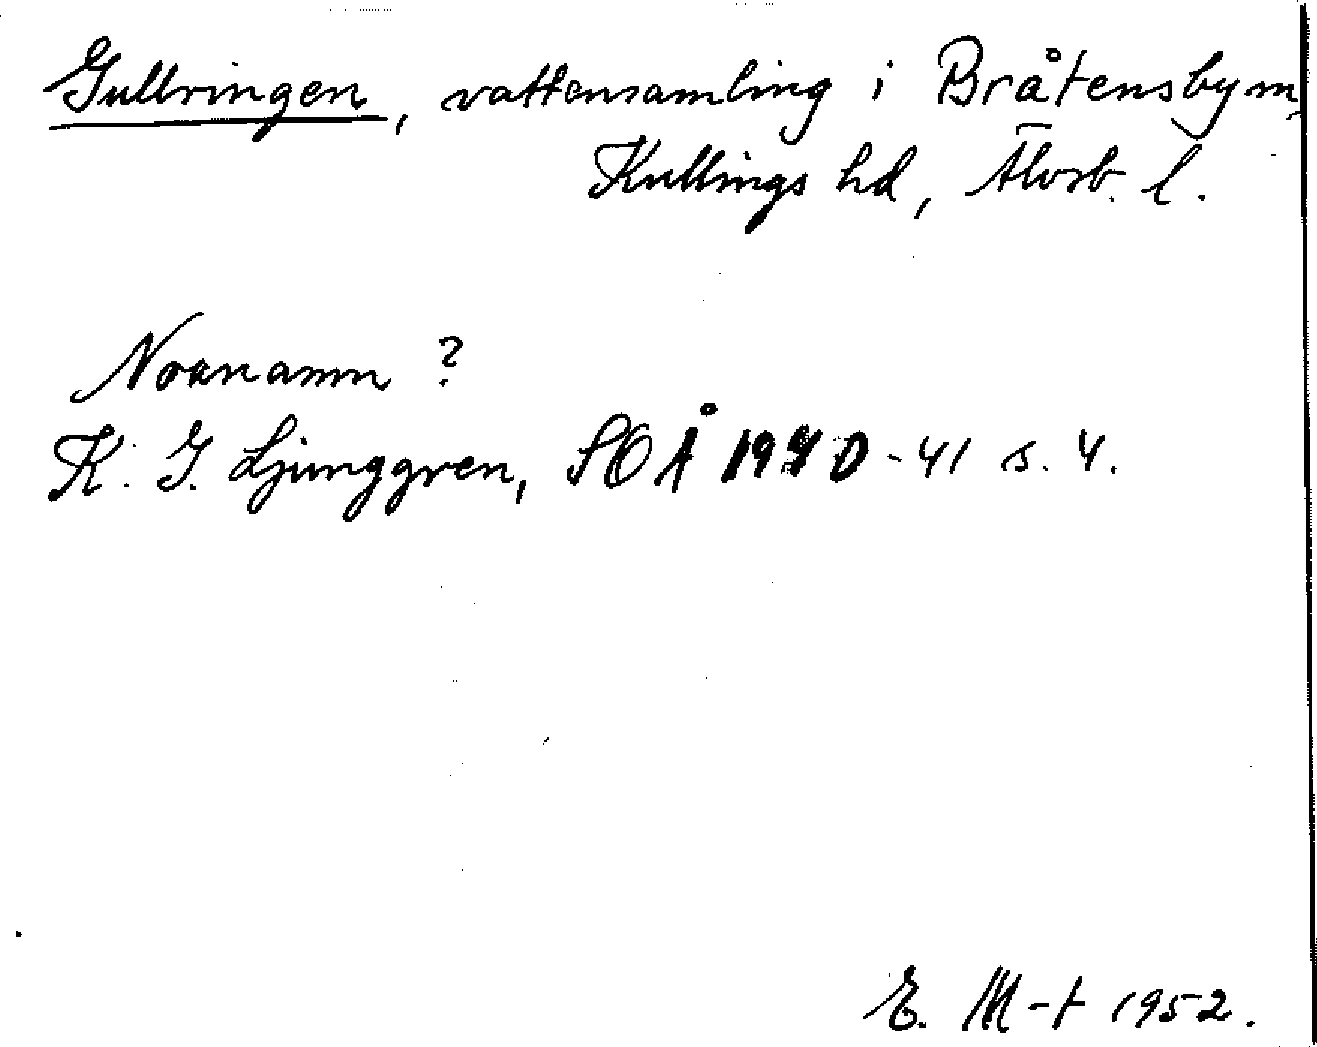 Gullringen, vattensamling i Bråtensby sn,
Kullings hd, Älvsb. l.
Noanamn ?
K. G. Ljunggren, SOÅ 1940-41 s. 4.
E. M-t 1952.